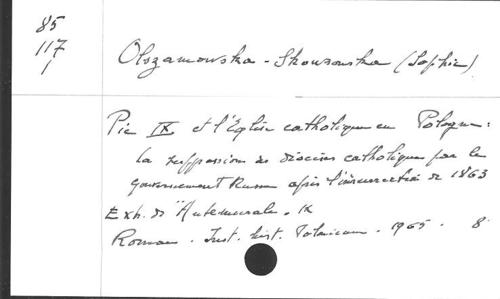 85
117
1
Olszamowska-Skowronska (Sophie)
Pie IX et l'Eglise catholique en Pologne:
la suppression des diocèses catholiques par le
gouvernement Russe après l'insurrection de 1863
Extr. de "Antemurale", IX
Romae. Inst. hist. Polonicum. 1965. 8°